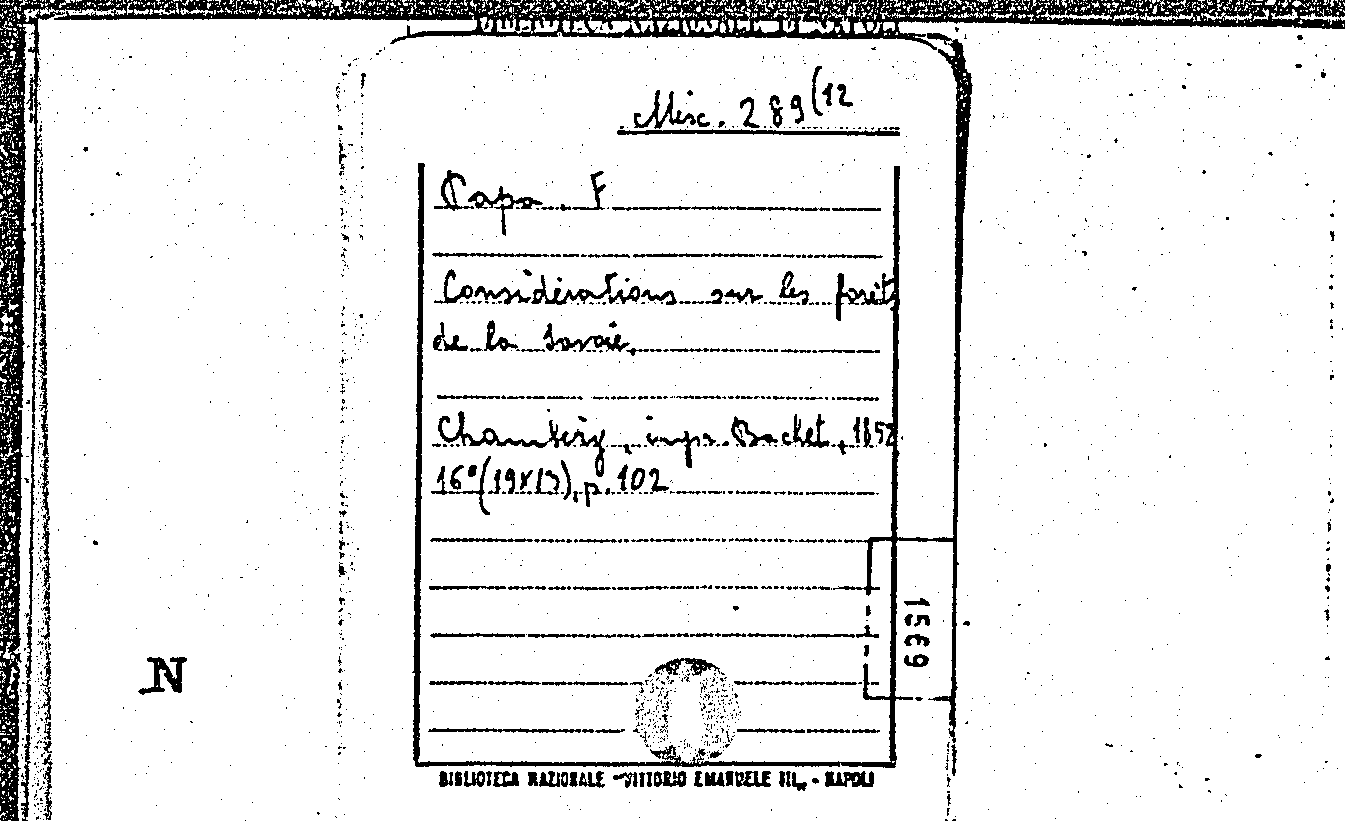 Misc. 289(12
Capa. F
Considérations sur les forêts
de la Savoie.
Chambéry, impr. Bachet, 1852
16°(19x13), p. 102
1569
N
BIBLIOTECA NAZIONALE "VITTORIO EMANUELE III" - NAPOLI